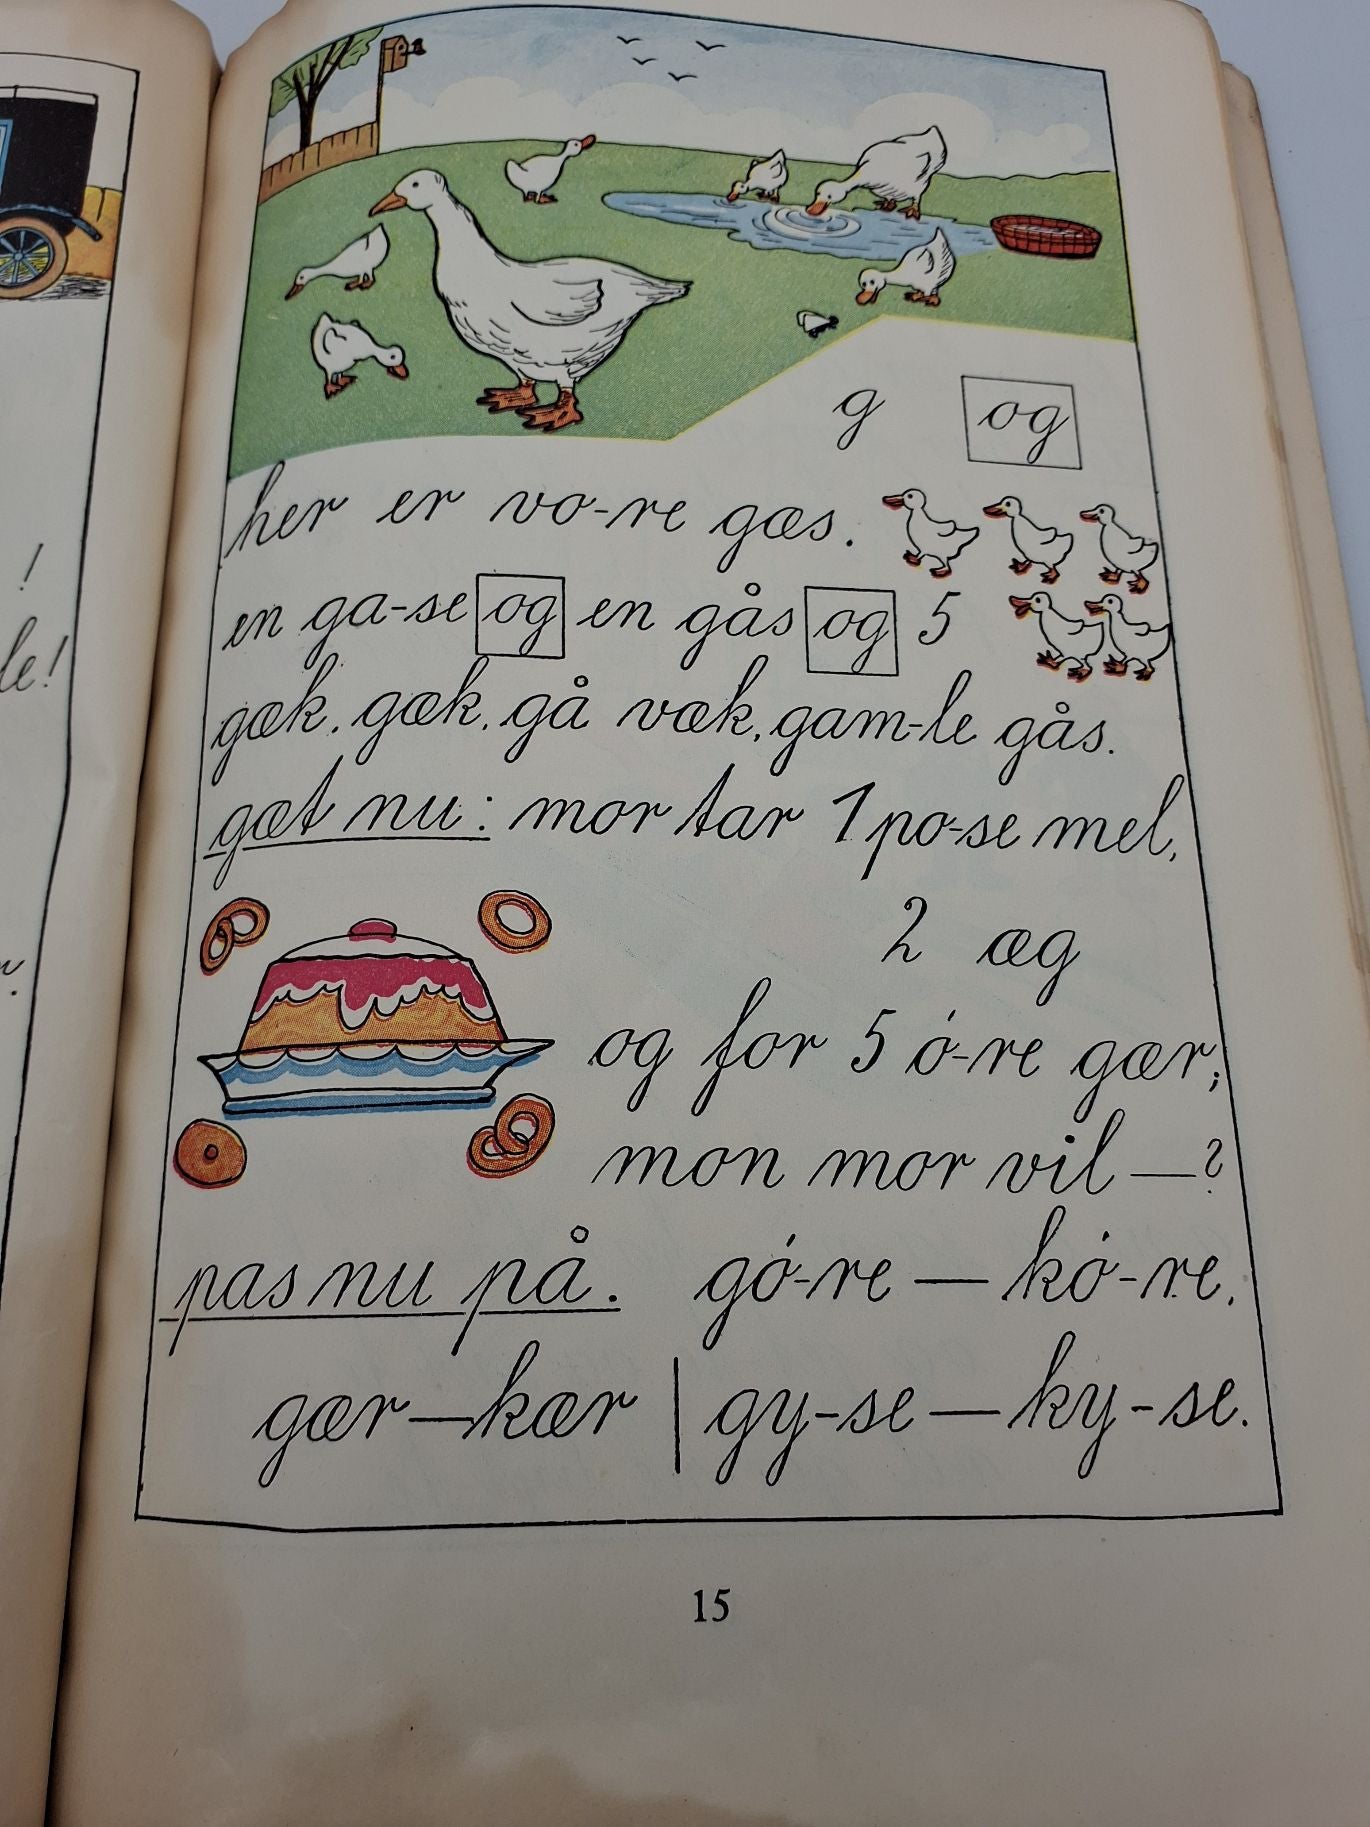 !
le!
g og
her er vo-re gæs.
en ga-se og en gås og 5
gæk, gæk, gå væk, gam-le gås.
gæt nu: mor tar 1 po-se mel,
2 æg
og for 5 ó-re gær;
mon mor vil — ?
pas nu på. gó-re — kó-re.
gær — kær | gy-se — ky-se.
15